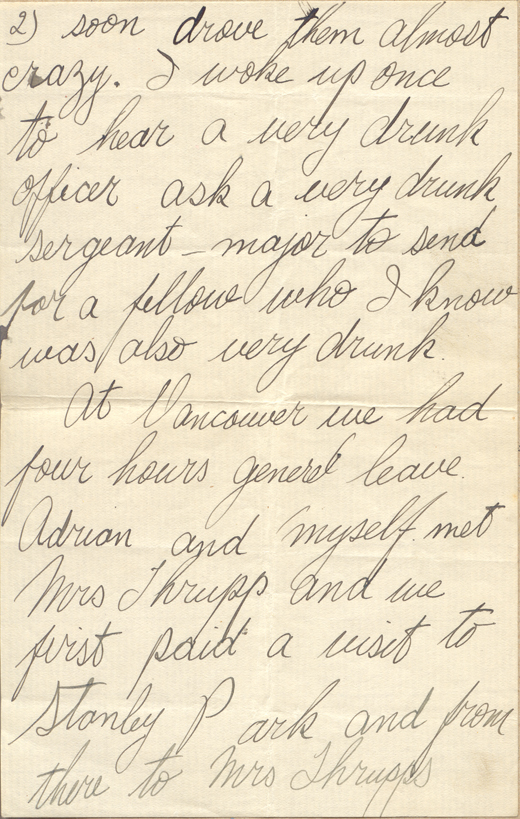 2) soon drove them almost
crazy. I woke up once
to hear a very drunk
officer ask a very drunk
sergeant-major to send
for a fellow who I know
was also very drunk.
At Vancouver we had
four hours general leave.
Adrian and myself met
Mrs Thrupp and we
first paid a visit to
Stanley Park and from
there to Mrs Thrupps